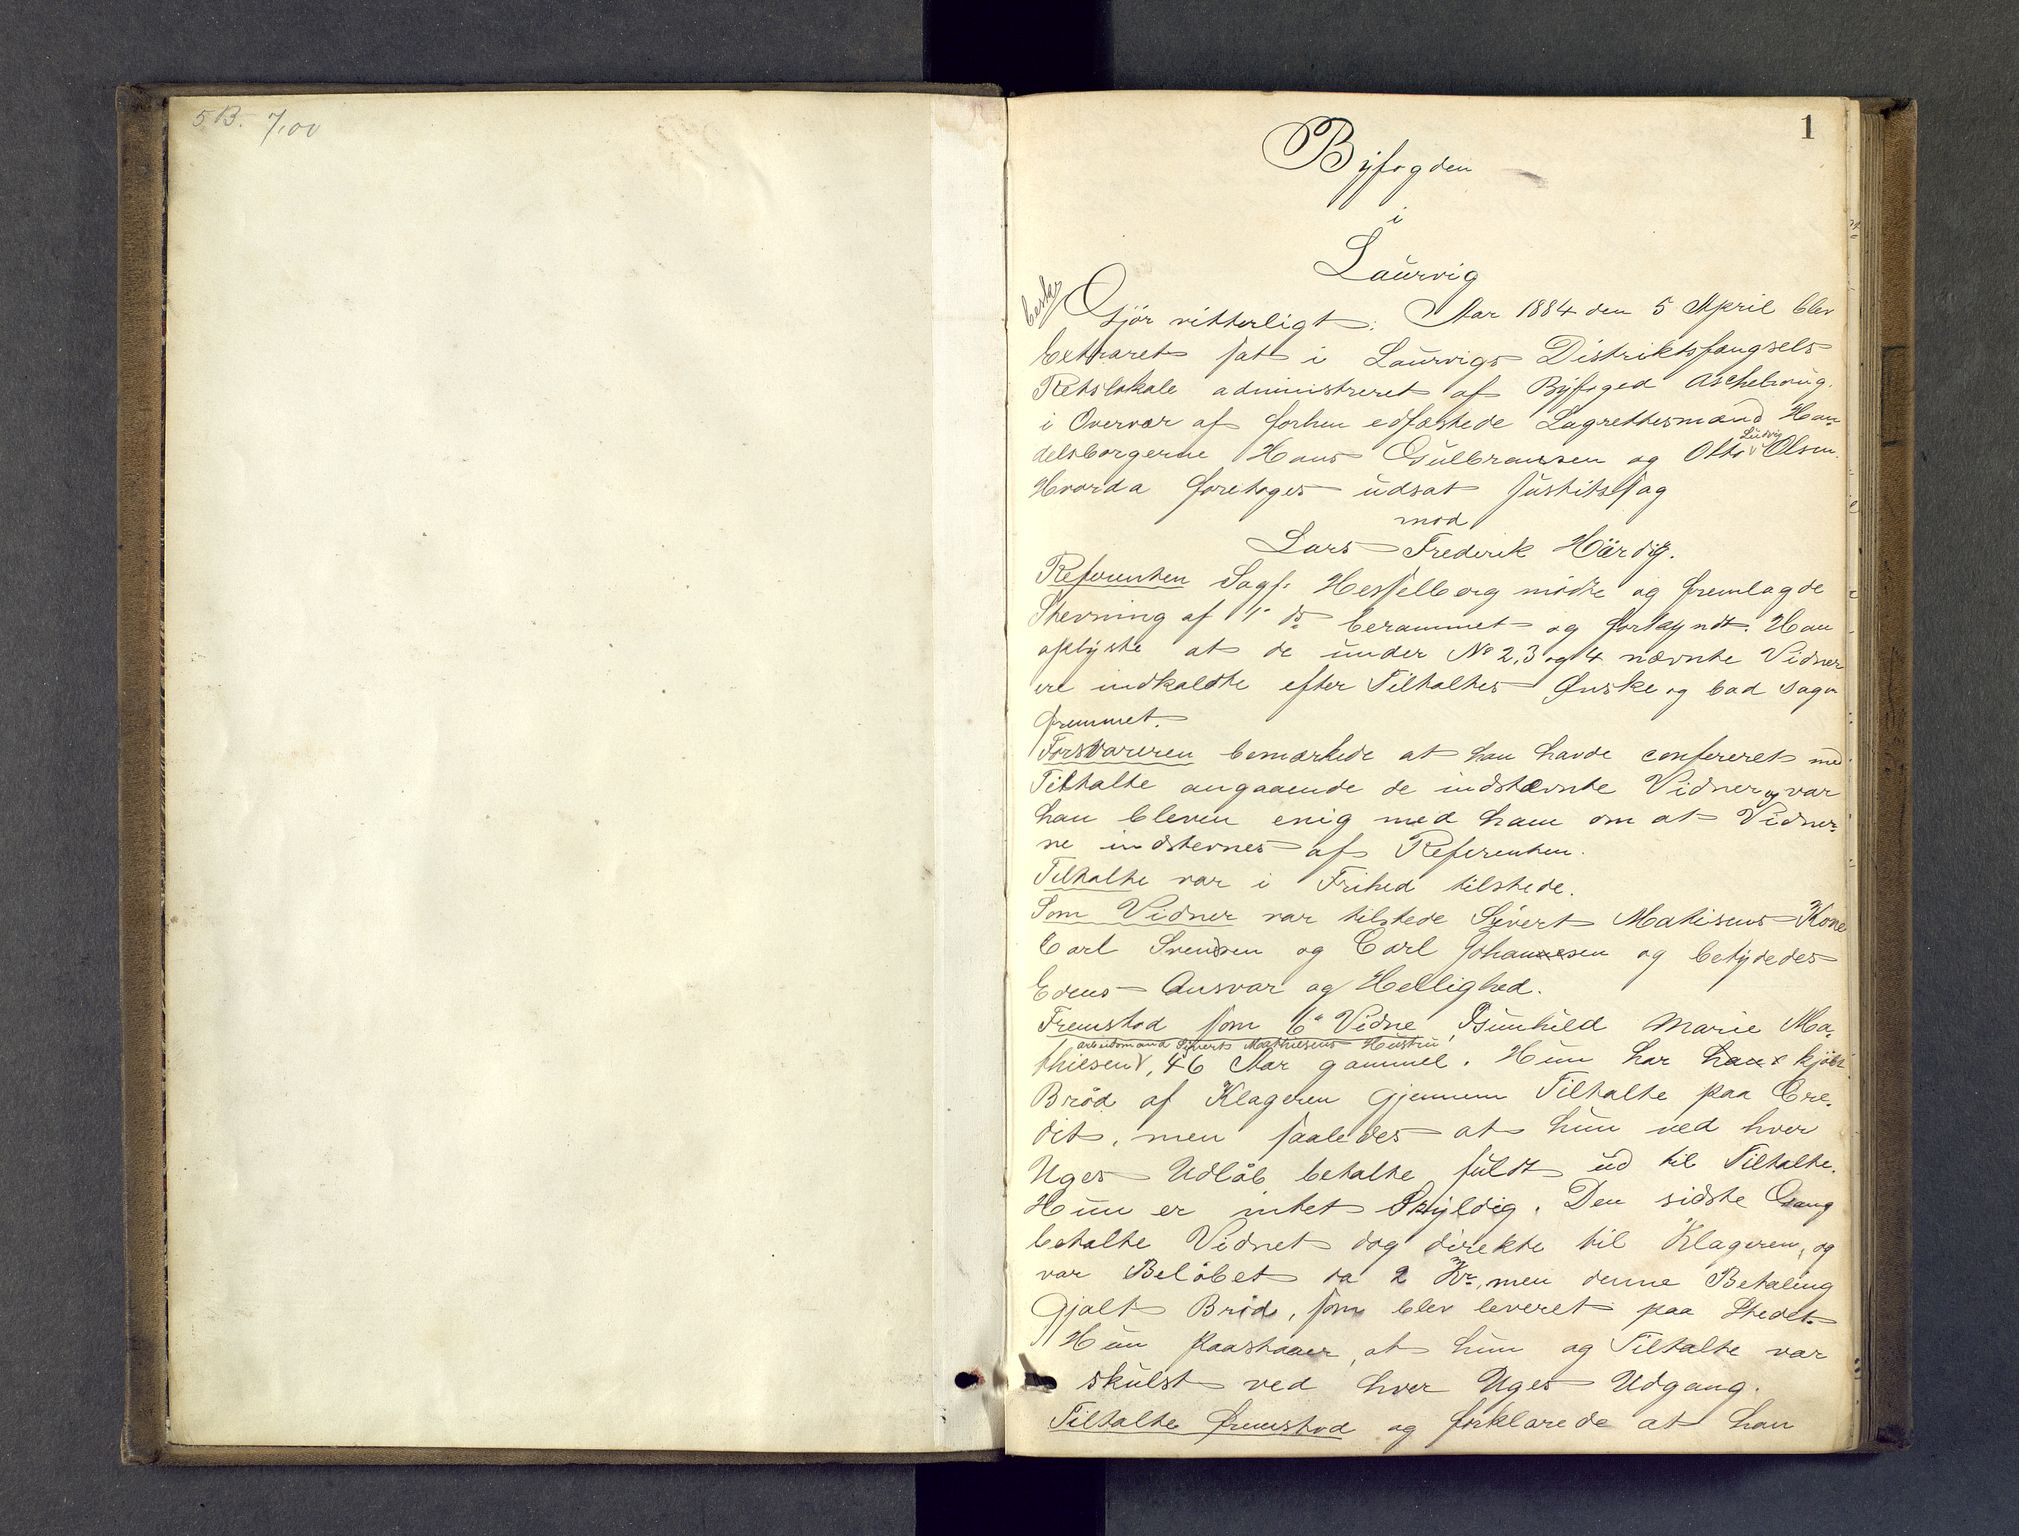 5 B. 7,00
1
Byfogden
i
Laurvig
Gjör vitterligt: Aar 1884 den 5 April blev
Extraret sat i Laurvigs Distriktsfængsels
Retslokale administreret af Byfoged Aschehoug
i Overvær af forhen edfæstede Lagrettesmænd Han-
delsborgerne Hans Gulbransen og Otto Ludvig Olsen.
Hvorda foretoges udsat Justitssag
mod
Lars Frederik Härdig.
Referenten Sagf. Hesselberg mødte og fremlagde
Stevning af 1' ds berammet og forkyndt. Han
oplyste at de under No 2, 3 og 4 nævnte Vidner
ere indkaldte efter Tiltaltes Ønske og bad Sagen
fremmet.
Forsvareren bemærkede at han havde confereret med
Tiltalte angaaende de indstævnte Vidner og var
han bleven enig med ham om at Vidner-
ne indstevnes af Referenten.
Tiltalte var i Frihed tilstede.
Som Vidner var tilstede Syvert Matisens Kone
Carl Svendsen og Carl Johannesen og betydedes
Edens Ansvar og Hellighed.
Fremstod som 6' Vidne, Gunhild Marie Ma-
arbeidsmand Syvert Mathiesens Hustru
thiesen, 46 Aar gammel. Hun har kjøbt
Brød af Klageren gjennem Tiltalte paa Cre-
dit, men saaledes at hun ved hver
Uges Udløb betalte fuldt ud til Tiltalte.
Hun er intet skyldig. Den sidste Gang
betalte Vidnet dog direkte til Klageren, og
var Beløbet da 2 Kr, men denne Betaling
gjalt Brød, som blev leveret paa Stedet.
Hun paastaaer, at hun og Tiltalte var
skulst ved hver Uges Udgang.
Tiltalte fremstod og forklarede at han